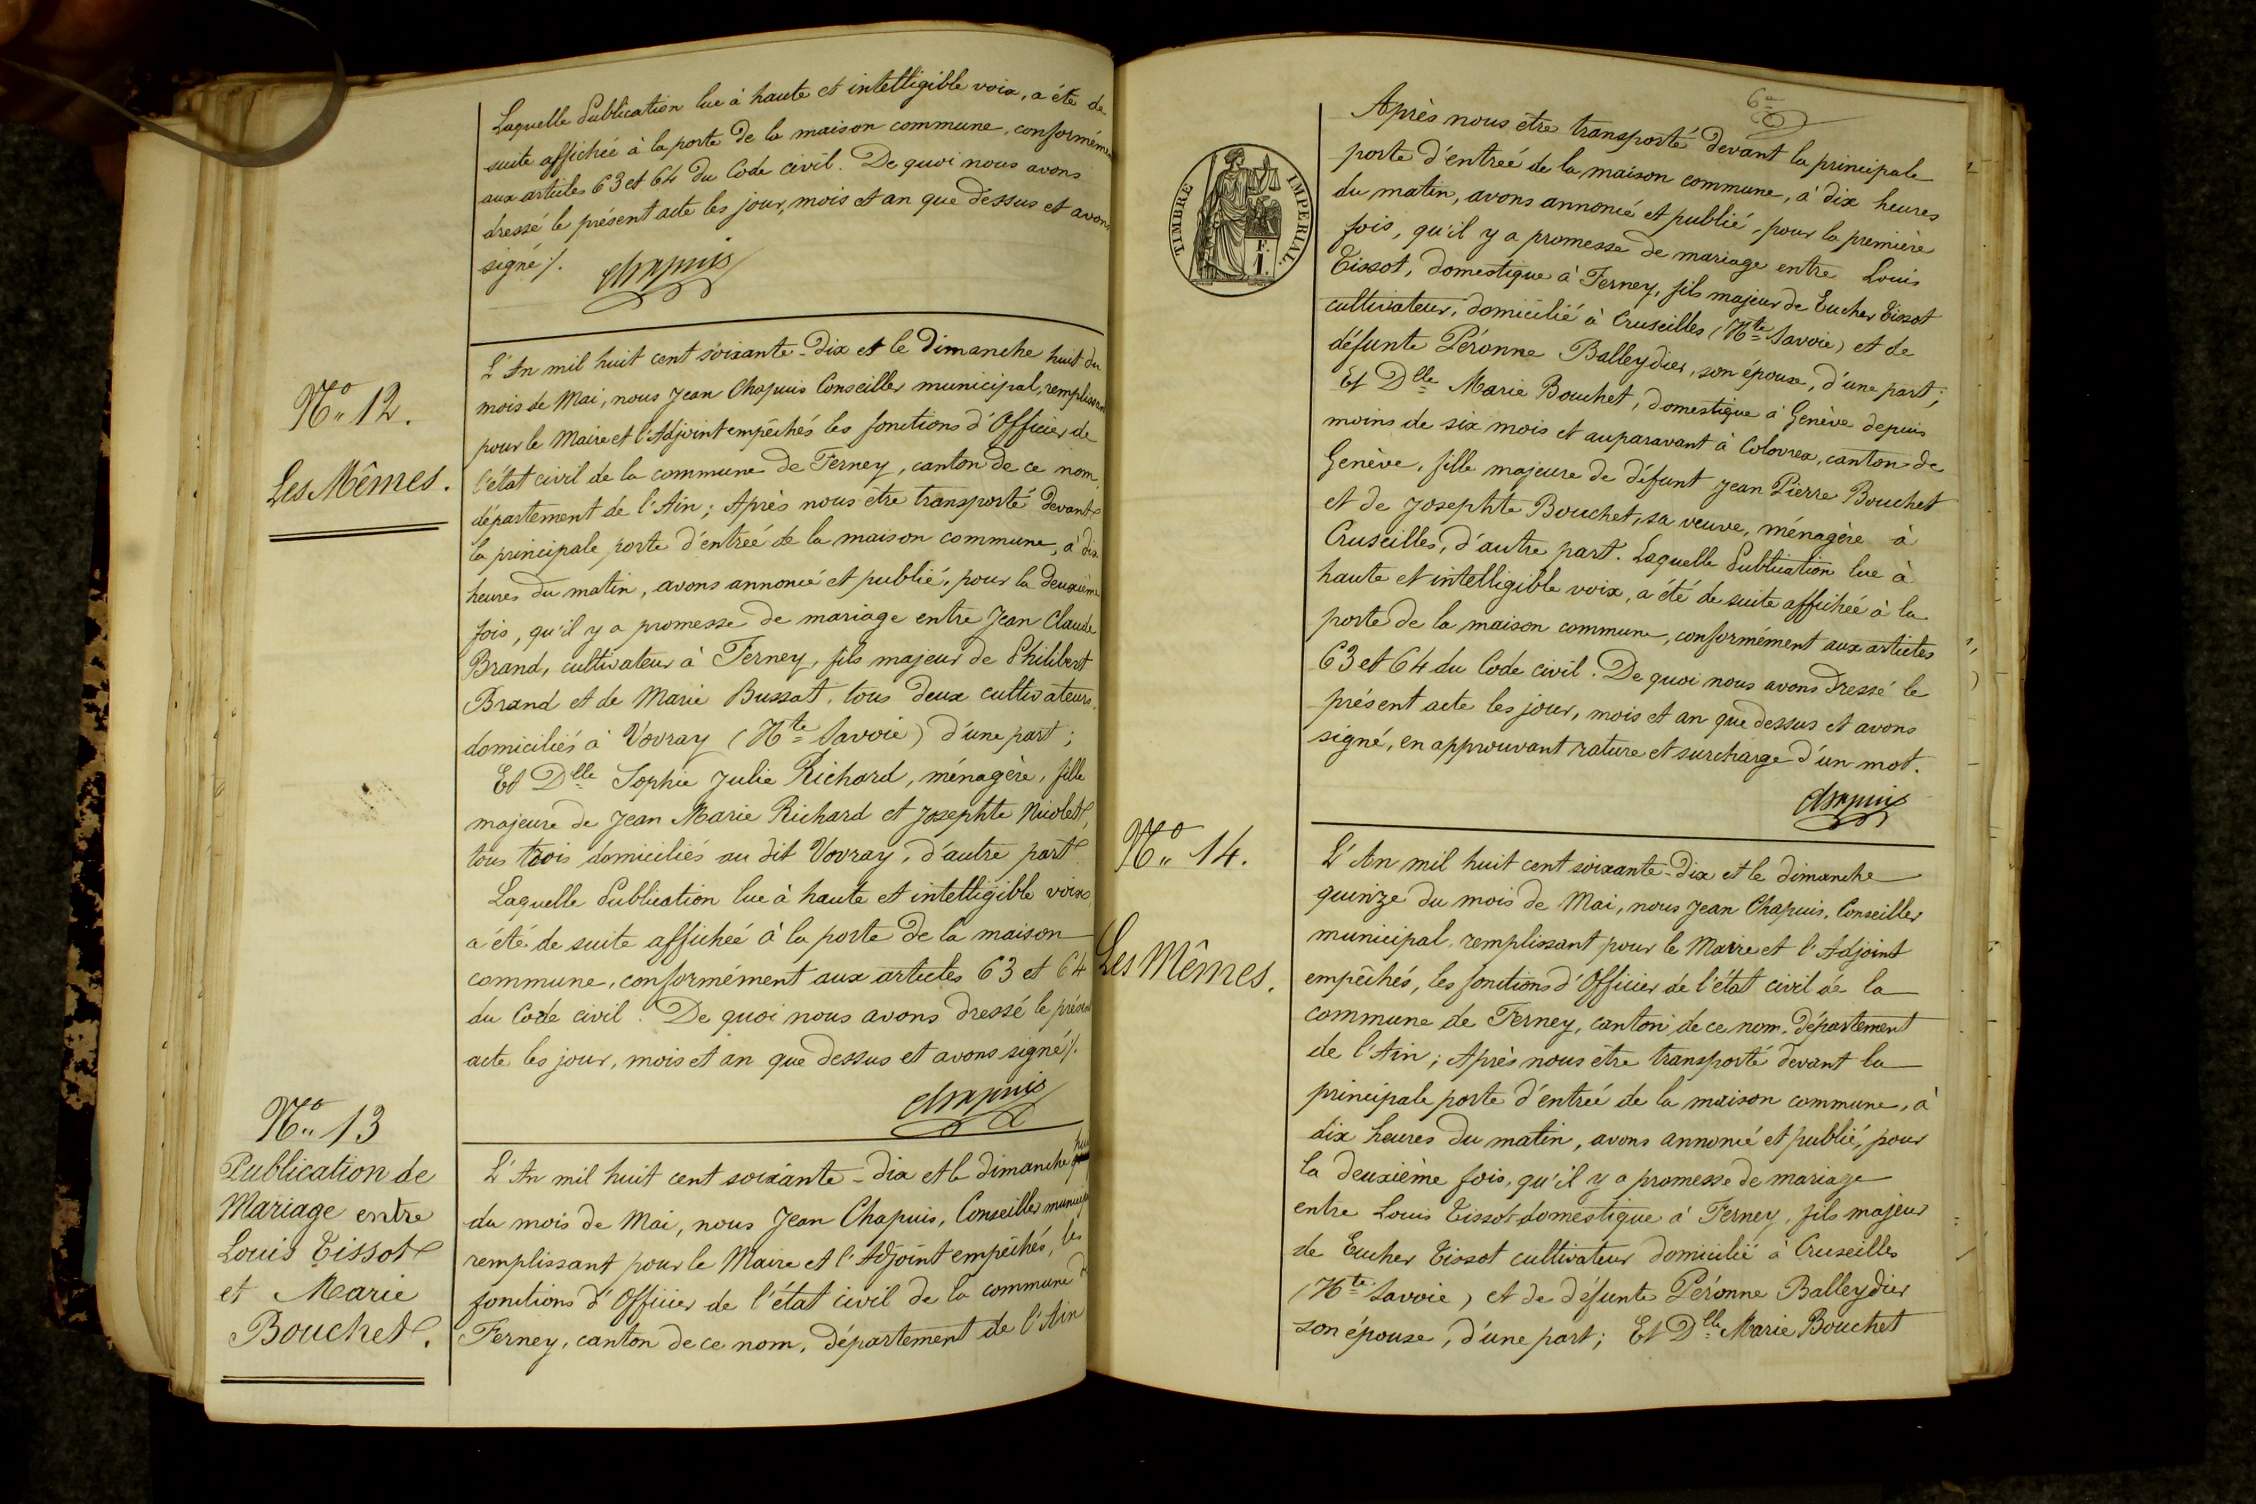 Laquelle Publication lue à haute et intelligible voix, a été de
suite affichée à la porte de la maison commune, conformémen
aux articles 63 et 64 du Code civil. De quoi nous avons
dressé le présent acte les jour, mois et an que dessus et avons
signé ./.
Chapuis
N° 12.
Les Mêmes.
L'An mil huit cent soixante-dix et le Dimanche huit du
mois de Mai, nous Jean Chapuis Conseiller municipal, remplissant
pour le Maire et l'Adjoint empêchés les fonctions d'Officier de
l'état civil de la commune de Ferney, canton de ce nom,
département de l'Ain; Après nous etre transporté devant
la principale porte d'entrée de la maison commune, à dix
heures du matin, avons annoncé et publié, pour la deuxième
fois, qu'il y a promesse de mariage entre Jean Claude
Brand, cultivateur à Ferney, fils majeur de Philibert
Brand et de Marie Bussat, tous deux cultivateurs,
domiciliés à Vovray (Hte Savoie) d'une part;
Et Dlle Sophie Julie Richard, ménagère, fille
majeure de Jean Marie Richard et Josephte Nicolet,
tous trois domiciliés au dit Vovray, d'autre part.
Laquelle Publication lue à haute et intelligible voix,
a été de suite affichée à la porte de la maison
commune, conformément aux articles 63 et 64
du Code civil. De quoi nous avons dressé le présent
acte les jour, mois et an que dessus et avons signé ./.
Chapuis
N° 13
Publication de
Mariage entre
Louis Tissot
et Marie
Bouchet.
L'An mil huit cent soixante-dix et le dimanche
du mois de Mai, nous Jean Chapuis, Conseiller municip
remplissant pour le Maire et l'Adjoint empêchés, les
fonctions d'Officier de l'état civil de la commune d
Ferney, canton de ce nom, département de l'Ain
6e
TIMBRE IMPERIAL.
F.
1.
Après nous etre transporté devant la principale
porte d'entreé de la maison commune, à dix heures
du matin, avons annoncé et publié, pour la première
fois, qu'il y a promesse de mariage entre Louis
Tissot, domestique à Ferney, fils majeur de Eucher Tissot
cultivateur, domicilié à Cruseilles (Hte Savoie) et de
défunte Péronne Balleydier, son épouse, d'une part;
Et Dlle Marie Bouchet, domestique à Genève depuis
moins de six mois et auparavant à Colovrex, canton de
Genève, fille majeure de défunt Jean Pierre Bouchet
et de Josephte Bouchet, sa veuve, ménagère à
Cruseilles, d'autre part. Laquelle Publication lue à
haute et intelligible voix, a été de suite affichée à la
porte de la maison commune, conformément aux articles
63 et 64 du Code civil. De quoi nous avons dressé le
présent acte les jour, mois et an que dessus et avons
signé, en approuvant rature et surcharge d'un mot.
Chapuis
N° 14.
Les Mêmes.
L'An mil huit cent soixante-dix et le dimanche
quinze du mois de Mai, nous Jean Chapuis, Conseiller
municipal, remplissant pour le Maire et l'Adjoint
empêchés, les fonctions d'Officier de l'état civil de la
commune de Ferney, canton de ce nom, département
de l'Ain; Après nous être transporté devant la
principale porte d'entrée de la maison commune, à
dix heures du matin, avons annoncé et publié, pour
la deuxième fois, qu'il y a promesse de mariage
entre Louis Tissot domestique à Ferney, fils majeur
de Eucher Tissot cultivateur domicilié à Cruseilles
(Hte Savoie) et de défunte Péronne Balleydier
son épouse, d'une part; Et Dlle Marie Bouchet